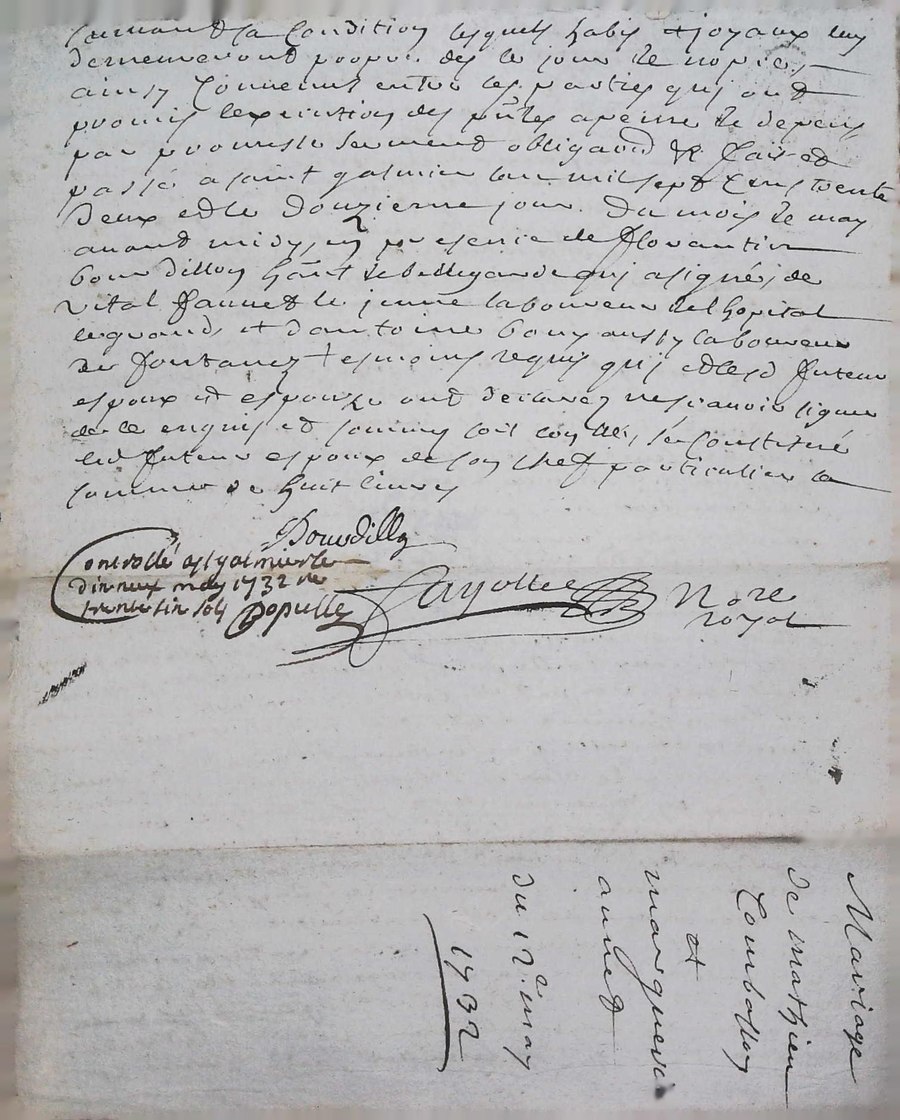 suivant sa condition lesquels habis et joyaux luy
demeureront propre des le jour de nopces
ainsy convenus entre les parties quj ont
promis l'execution des pntes apeine de depens
par promesse serment obligaon &c fait et
passé a saint galmier lan mil sept cens trente
deux et le douzieme jour du mois de may
auant midy, en presence de florantin
bourdillon hant de bellegarde quj a signé, de
vital fannet le jeune laboureur de lhopital
legrand, et dantoine bouy aussy laboureur
de fontanez tesmoins requis quj et lesd futeur
espoux et espouze ont declarez ne scauoir signer
de ce enquis et sommes soit con lles, se constitué
led futeur espoux de son chef particulier la
somme de huit liures
Bourdillon
Controllé a st galmier le
dix neux may 1732 re
trente six sols Populle
Cayottee Nore
royal
Mariage
de mathieu
Combasson
et
marguerite
du 12e may
1732